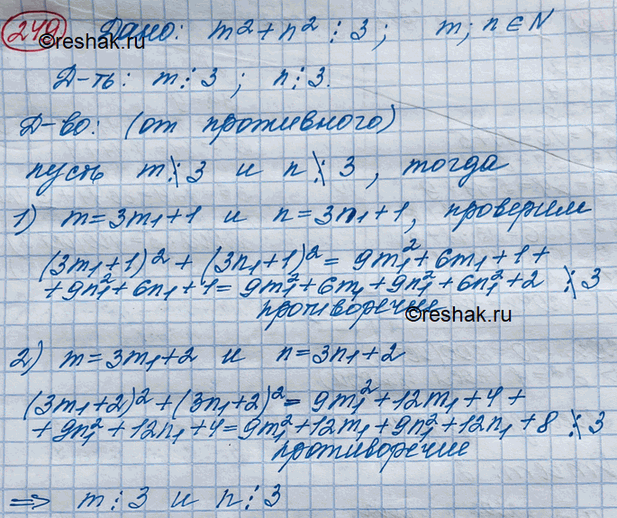 249 Дано: m² + n² ⋮ 3; m; n ∈ N
©reshak.ru
Д-ть: m ⋮ 3; n ⋮ 3.
Д-во: (от противного)
пусть m ⋮̸ 3 и n ⋮̸ 3, тогда
1) m = 3m₁ + 1 и n = 3n₁ + 1, проверим
(3m₁+1)² + (3n₁+1)² = 9m₁² + 6m₁ + 1 +
+ 9n₁² + 6n₁ + 1 = 9m₁² + 6m₁ + 9n₁² + 6n₁² + 2 ⋮̸ 3
противоречие
©reshak.ru
2) m = 3m₁ + 2 и n = 3n₁ + 2
(3m₁+2)² + (3n₁+2)² = 9m₁² + 12m₁ + 4 +
+ 9n₁² + 12n₁ + 4 = 9m₁² + 12m₁ + 9n₁² + 12n₁ + 8 ⋮̸ 3
противоречие
⇒ m ⋮ 3 и n ⋮ 3